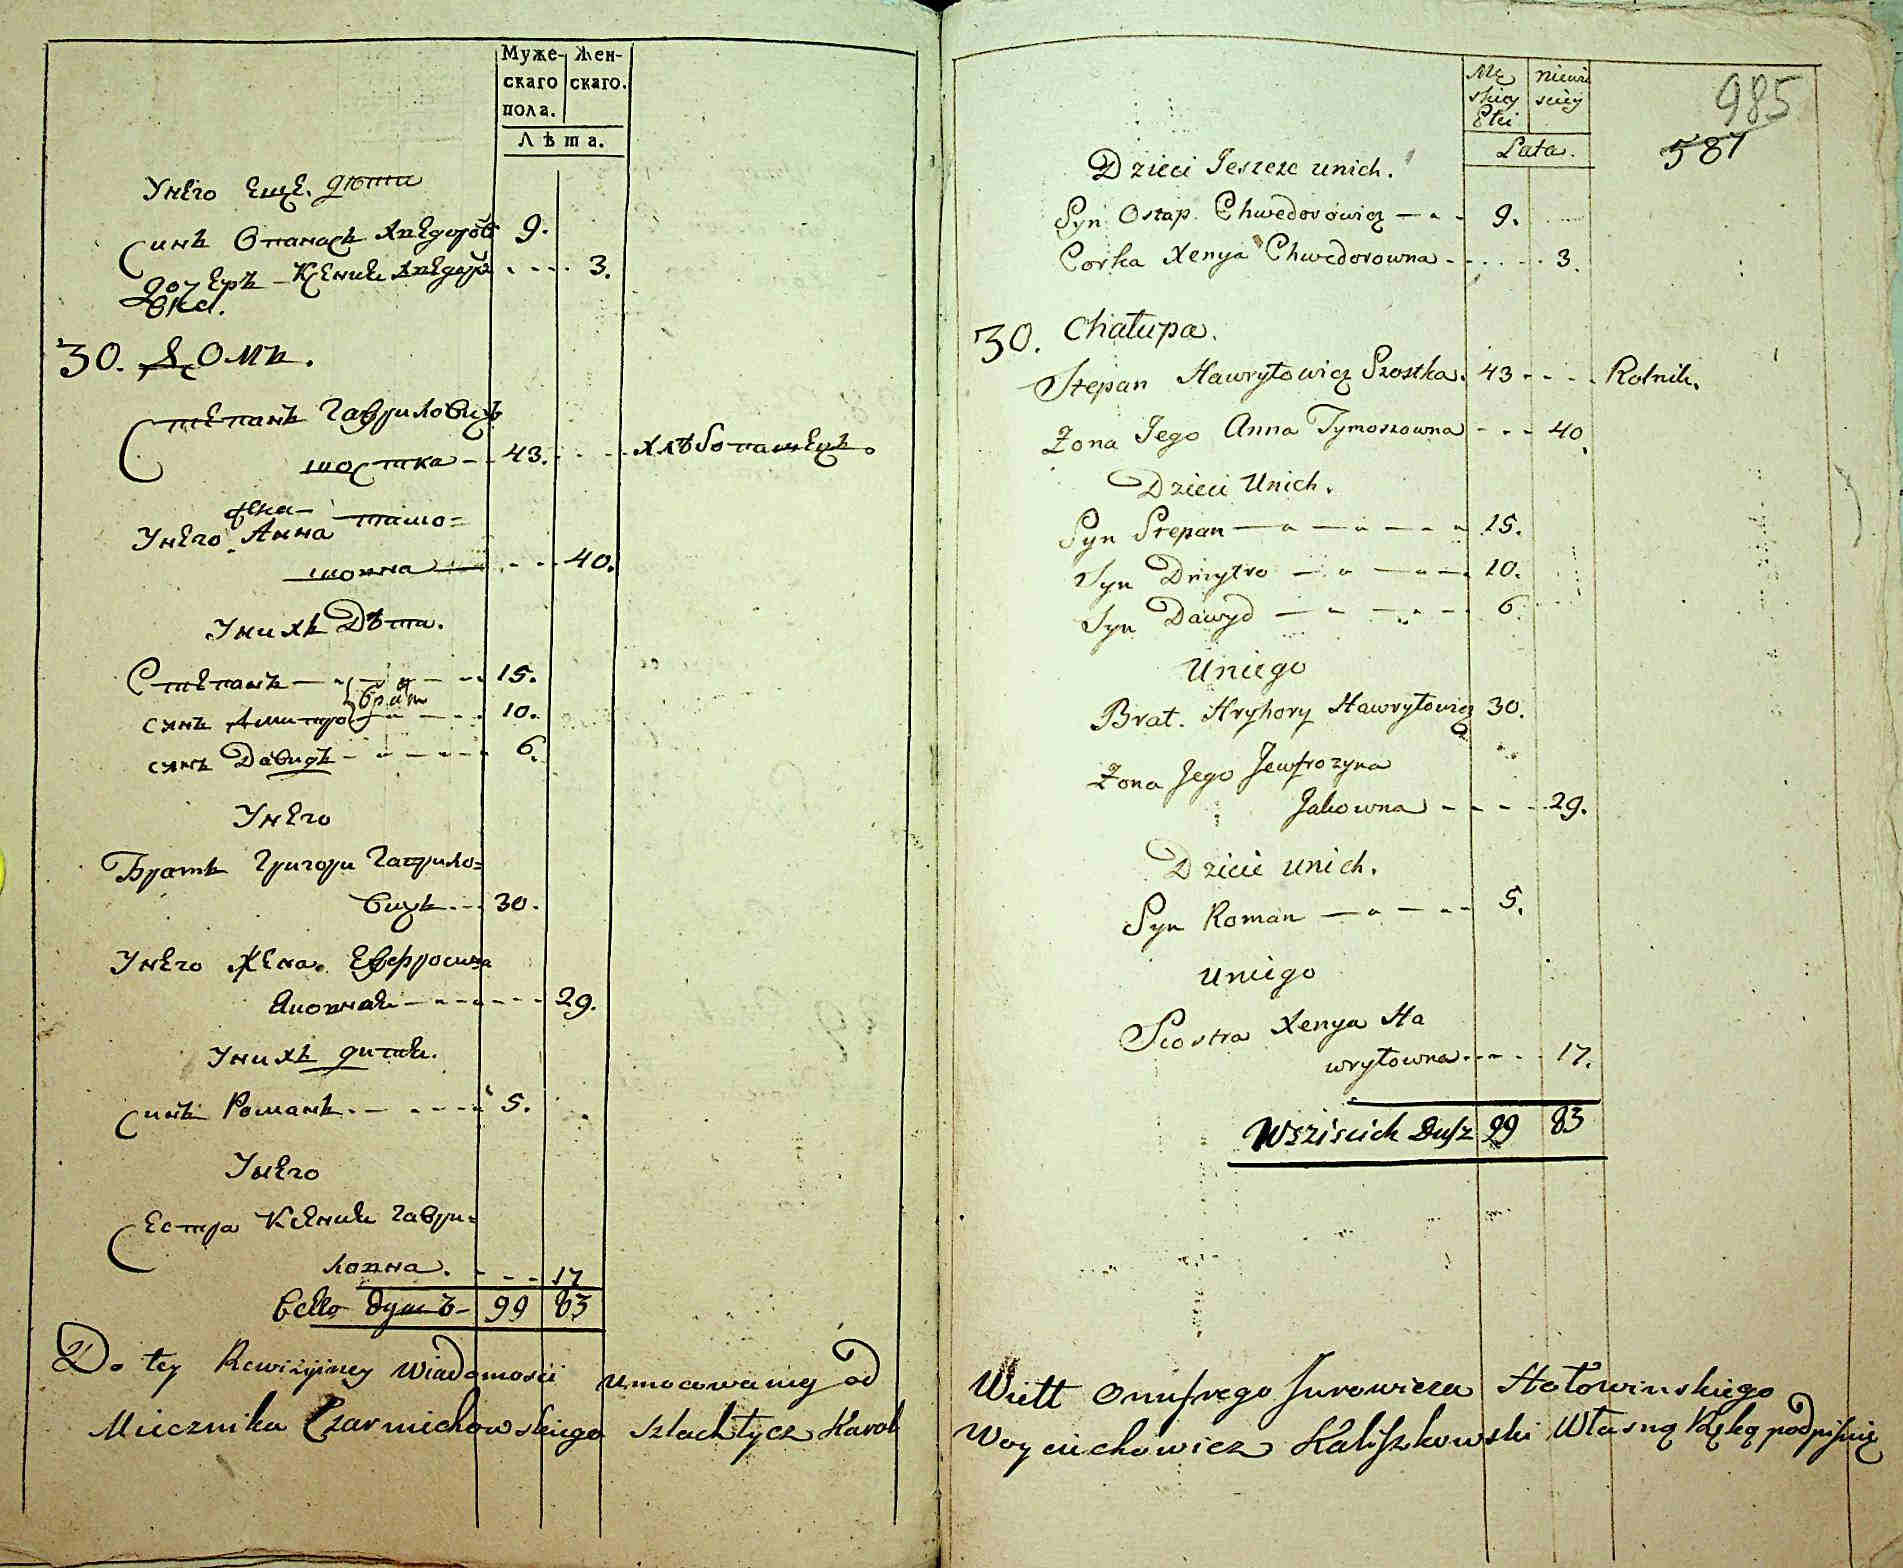 Муже-
скаго
пола.
Жен-
скаго.
Лѣта.
Унего еще. дѣти
Синъ Опанасъ Хведоровъ 9.
Дочеръ Ксения Хведоро 3.
вна.
30. Домъ.
Степанъ Гавриловичъ
шостка 43. хлѣбопашецъ.
жена
Унего Анна тимо=
шовна 40.
Унихъ Дѣти.
Степанъ 15.
синъ Дмитро 10.
синъ Давидъ 6.
Унего
Братъ Григори Гаврило=
вичъ 30.
Унего Жена. Евфросина
Яковная 29.
Унихъ дитяи.
Синъ Романъ. 5.
Унего
Сестра Ксения Гаври=
ловна. 17
Всего душъ 99 83
Do tey Rewizyiney Wiadomosci umocowaniy od
Miecznika Czarmichowskiego Szlachtycz Karol
985
587
Mę
skiey
Płci
niewi
sciey
Lata.
Dzieci Jeszcze unich.
Syn Ostap. Chwedorowicz 9.
Corka Xenya Chwedorowna 3.
30. Chałupa.
Stepan Hawryłowicz Szostka. 43 Rolnik.
Zona Jego Anna Tymoszowna 40.
Dzieci Unich.
Syn Stepan 15.
Syn Dmytro 10.
Syn Dawyd 6
Uniego
Brat. Hryhory Hawryłowicz 30.
Zona Jego Jewfrozyna
Jakowna 29.
Dzieie unich.
Syn Roman 5.
Uniego
Siostra Xenya Ha
wryłowna 17.
Wsziscich Dusz 99 83
Wiell Onufrego Jurowicza Hołowinskiego
Woyciechowicz Kaliszkowski Własną Ręką podpisuię